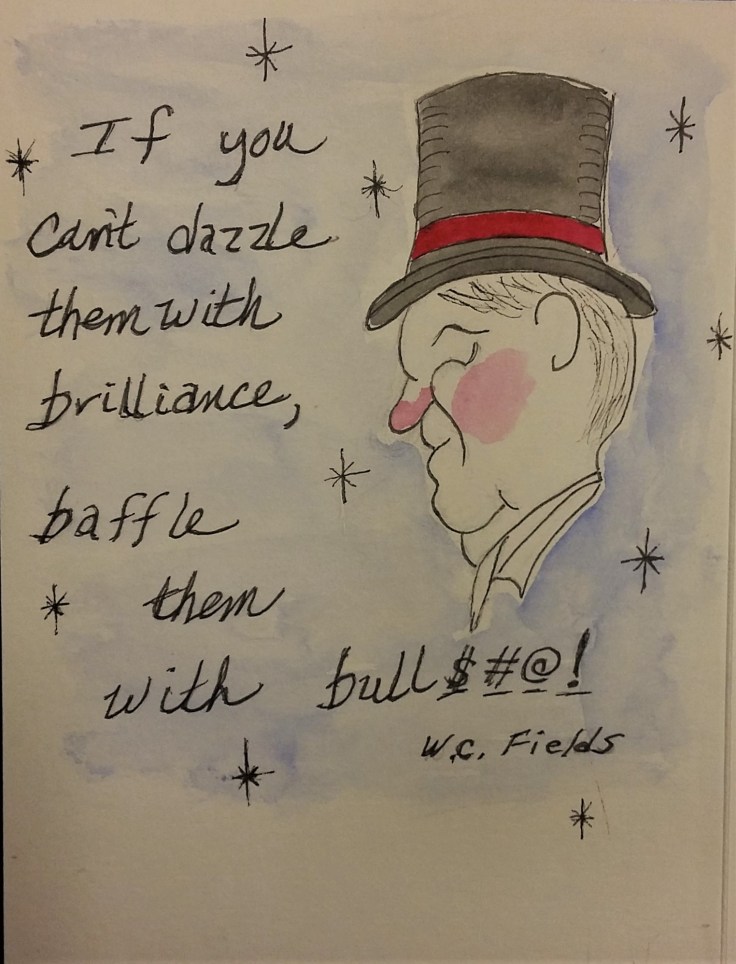 If you
Can't dazzle
them with
brilliance,
baffle
them
with bull$#@!
W.C. Fields